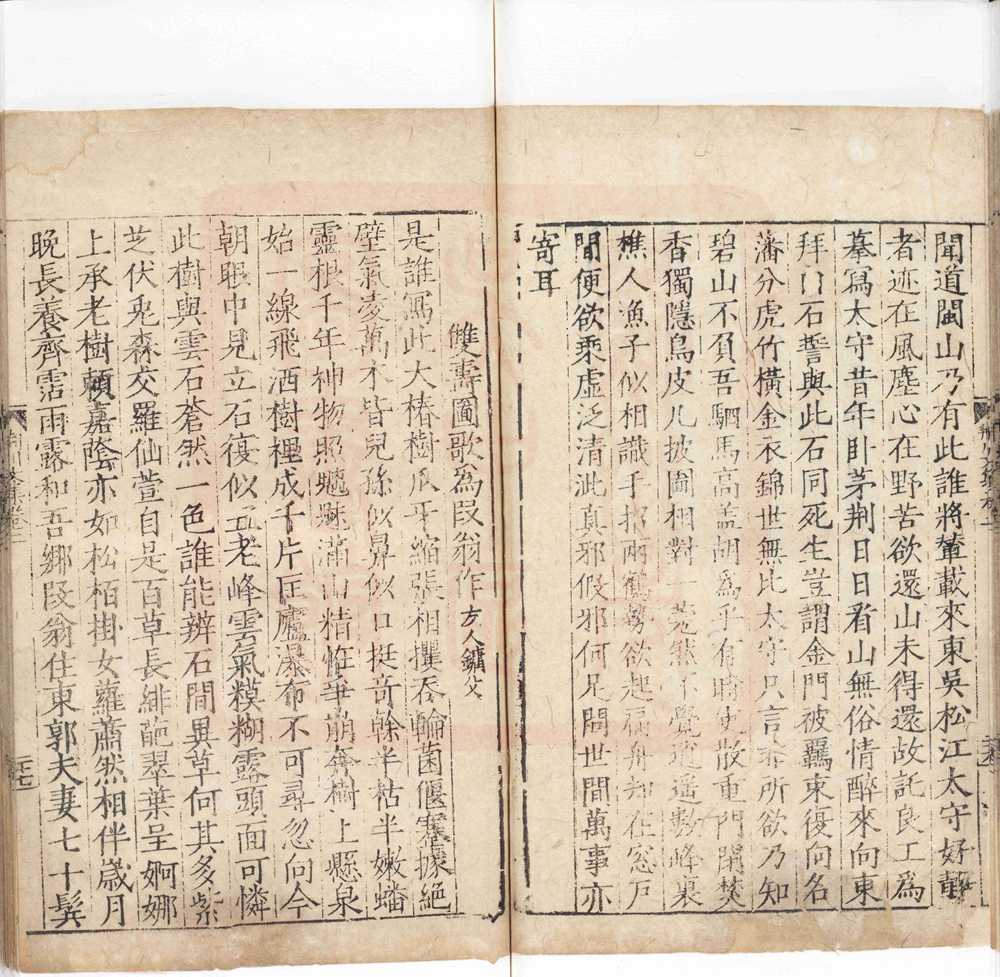 聞道閩山乃有此誰將輦載來東吳松江太守好
者迹在風塵心在野苦欲還山未得還故託良工爲
摹寫太守昔年卧茅荆日日看山無俗情醉來向東
拜口石誓與此石同死生豈謂金門被羈束復向名
藩分虎竹橫金衣錦世無比太守只言非所欲乃知
碧山不負吾駟馬高盖胡爲乎有時吏散重門閉焚
香獨隱烏皮几披圖相對一茫然不覺逍遥數峰裏
樵人漁子似相識手招兩鶴勢欲起扁舟知在窓戸
間便欲乘虛泛清泚真邪假邪何足問世間萬事亦
寄耳
雙壽圖歌爲叚翁作方人鏞父
是誰寫此大椿樹瓜牙縮張相攫吞輪菌偃蹇據絶
壁氣凌萬木皆兒孫似鼻似口挺竒榦半枯半嫩蟠
靈根千年神物照魑魅滿山精恠爭崩奔樹上懸泉
始一線飛洒樹裡成千片匡廬瀑布不可尋忽向今
朝眼中見立石復似五老峰雲氣糢糊露頭面可憐
此樹與雲石蒼然一色誰能辨石間異草何其多紫
芝伏兎森交羅仙萱自是百草長緋葩翠葉呈婀娜
上承老樹頼嘉陰亦如松栢掛女蘿蕭然相伴歲月
晚長養齊霑雨露和吾鄉叚翁住東郭夫妻七十鬂